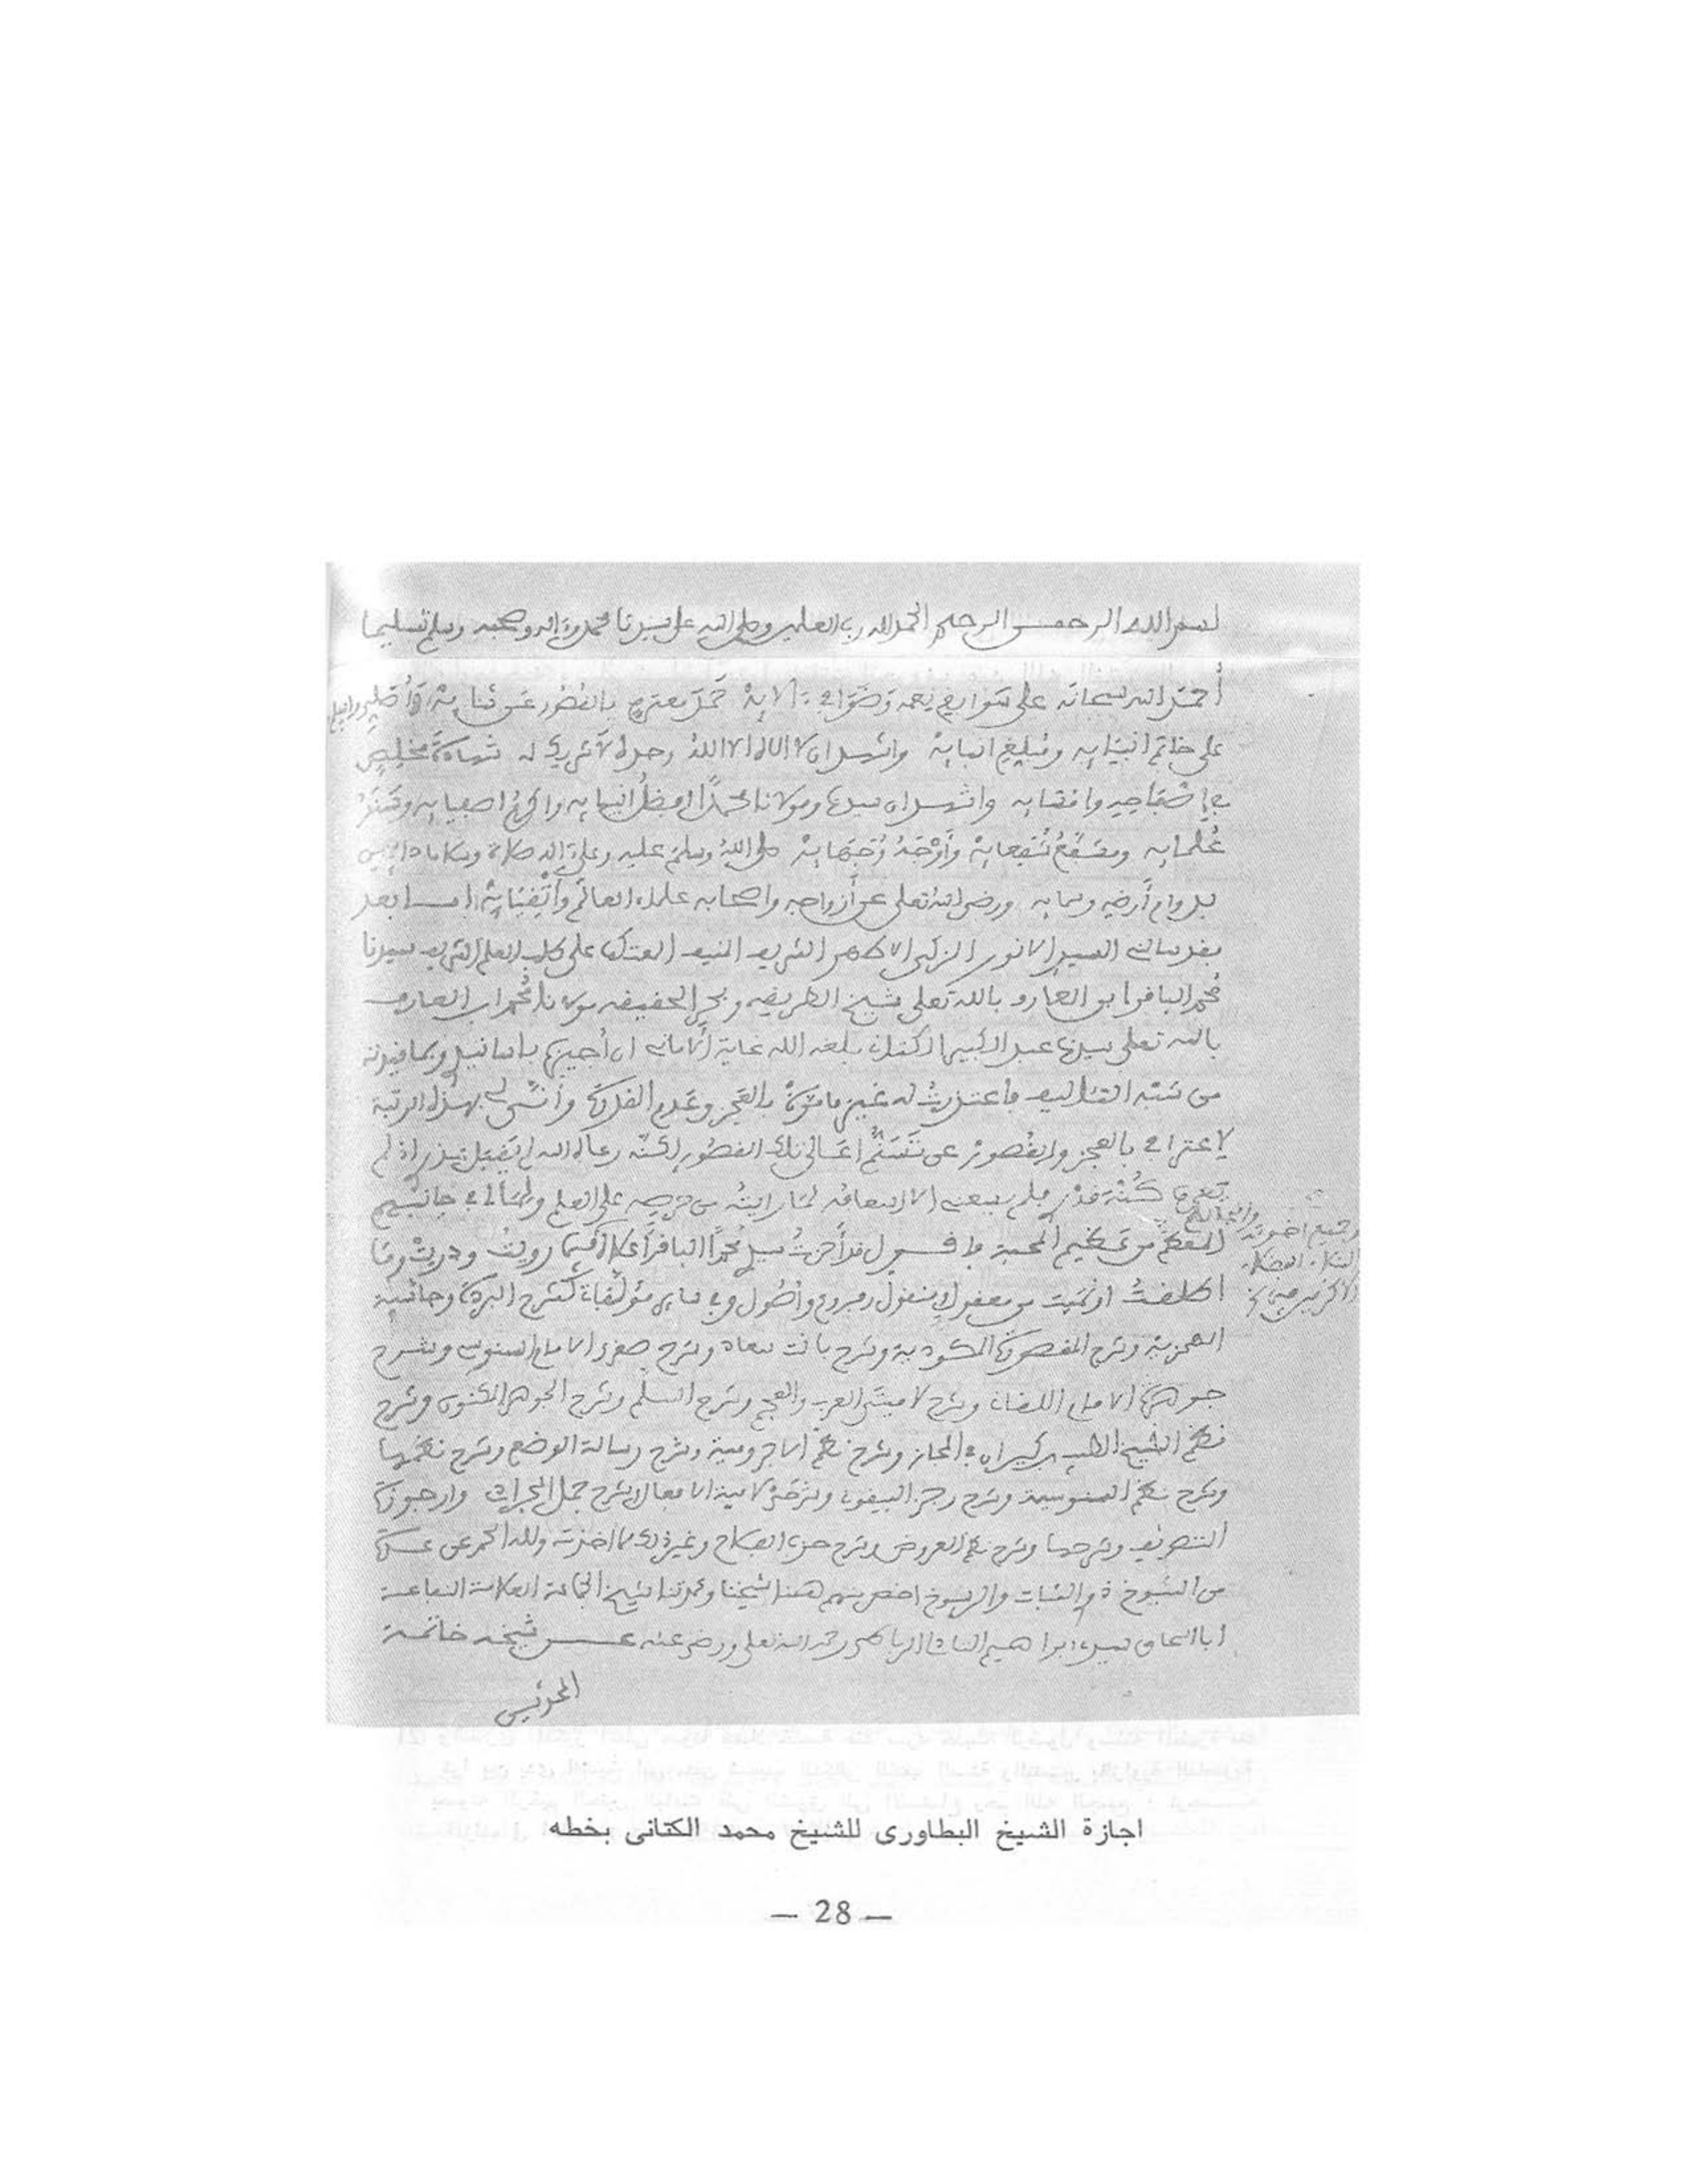 بسم الله الرحمن الرحيم الحمد لله رب العلمين وصلى الله على سيدنا محمد وءاله وصحبه وسلم تسليما
أحمد الله سبحانه على سوابغ نعمه وضوافي ءالايه حمد معترف بالقصور عن ثنايه وأصلي وأسلم
على خاتم انبيايه ومبلغ انبايه واشهد ان لا الاه الا الله وحده لا شريك له شهادة مخلص
واشهد ان سيدنا ومولانا محمدا افضل انبيايه واكرم اصفيايه
علمايه ومشفع شفعايه وأوجه وجهايه صلى الله وسلم عليه وعلى ءاله صلاة وسلاما دائمين
بدوام أرضه وسمايه ورضي الله تعلى عن أزواجه واصحابه علماء العالم وأتقيايه اما بعد
فقد سالني السيد الانور الزكي الاطهر الشريف المنيف المعتكف على طلب العلم الشريف سيدنا
محمد الباقر ابن العارف بالله تعلى شيخ الطريقه وبحر الحقيقه مولانا محمد ابن العارف
بالله تعلى سيدنا عبد الكبير الكتاني بلغه الله غاية الاماني ان أجيزه باسانيدي وبما قيدته
من شبه التئاليف فاعتذرت له غير ما مرة بالعجز وعدم القدرة وأنى لي بهذه الرتبة
لاعترافي بالعجز والقصور عن تسنم اعالي تلك القصور لكنه رعاه الله لم يقبل عذرا اذ لم
يعرف كنه قدري فلم يسعني الا اسعافه لما رايته من حرصه على العلم ولما لي في جانبهم
المعظم من عظيم المحبة فاقول قد أجزت سيدي محمدا الباقر أعلاه فيما رويت ودريت وما
وجميع اخوته وانجالهم
النبلاء الفضلاء
الاكرمين صح
اطلقت او قيدت من معقول ومنقول وفروع وأصول وفي مالي من مؤلفات كشرح البردة وحاشية
الهمزية وشرح المقصورة المكودية وشرح بانت سعاد وشرح صغرى الامام السنوسي وشرح
جوهرة الامام اللقاني وشرح لاميتي العرب والعجم وشرح السلم وشرح الجوهر المكنون وشرح
نظم الشيخ الطيب بن كيران في المجاز وشرح نظم الاجرومية وشرح رسالة الوضع وشرح نظمها
وشرح نظم السنوسية وشرح رجز وشرح لامية الافعال وشرح جمل المجرادي وارجوزة
التصريف وشرحها وشرح نظم العروض وشرح حزب الفلاح وغير ذلك مما اخذته ولله الحمد عن عدة
من الشيوخ ذوي الثبات والرسوخ اخص منهم هنا شيخنا وعمدتنا شيخ الجماعة العلامة النفاعة
ابا اسحاق سيدي ابراهيم التادلي الرباطي رحمه الله تعلى ورضي عنه عن شيخه خاتمة
المحدثين
اجازة الشيخ البطاورى للشيخ محمد الكتانى بخطه
— 28 —